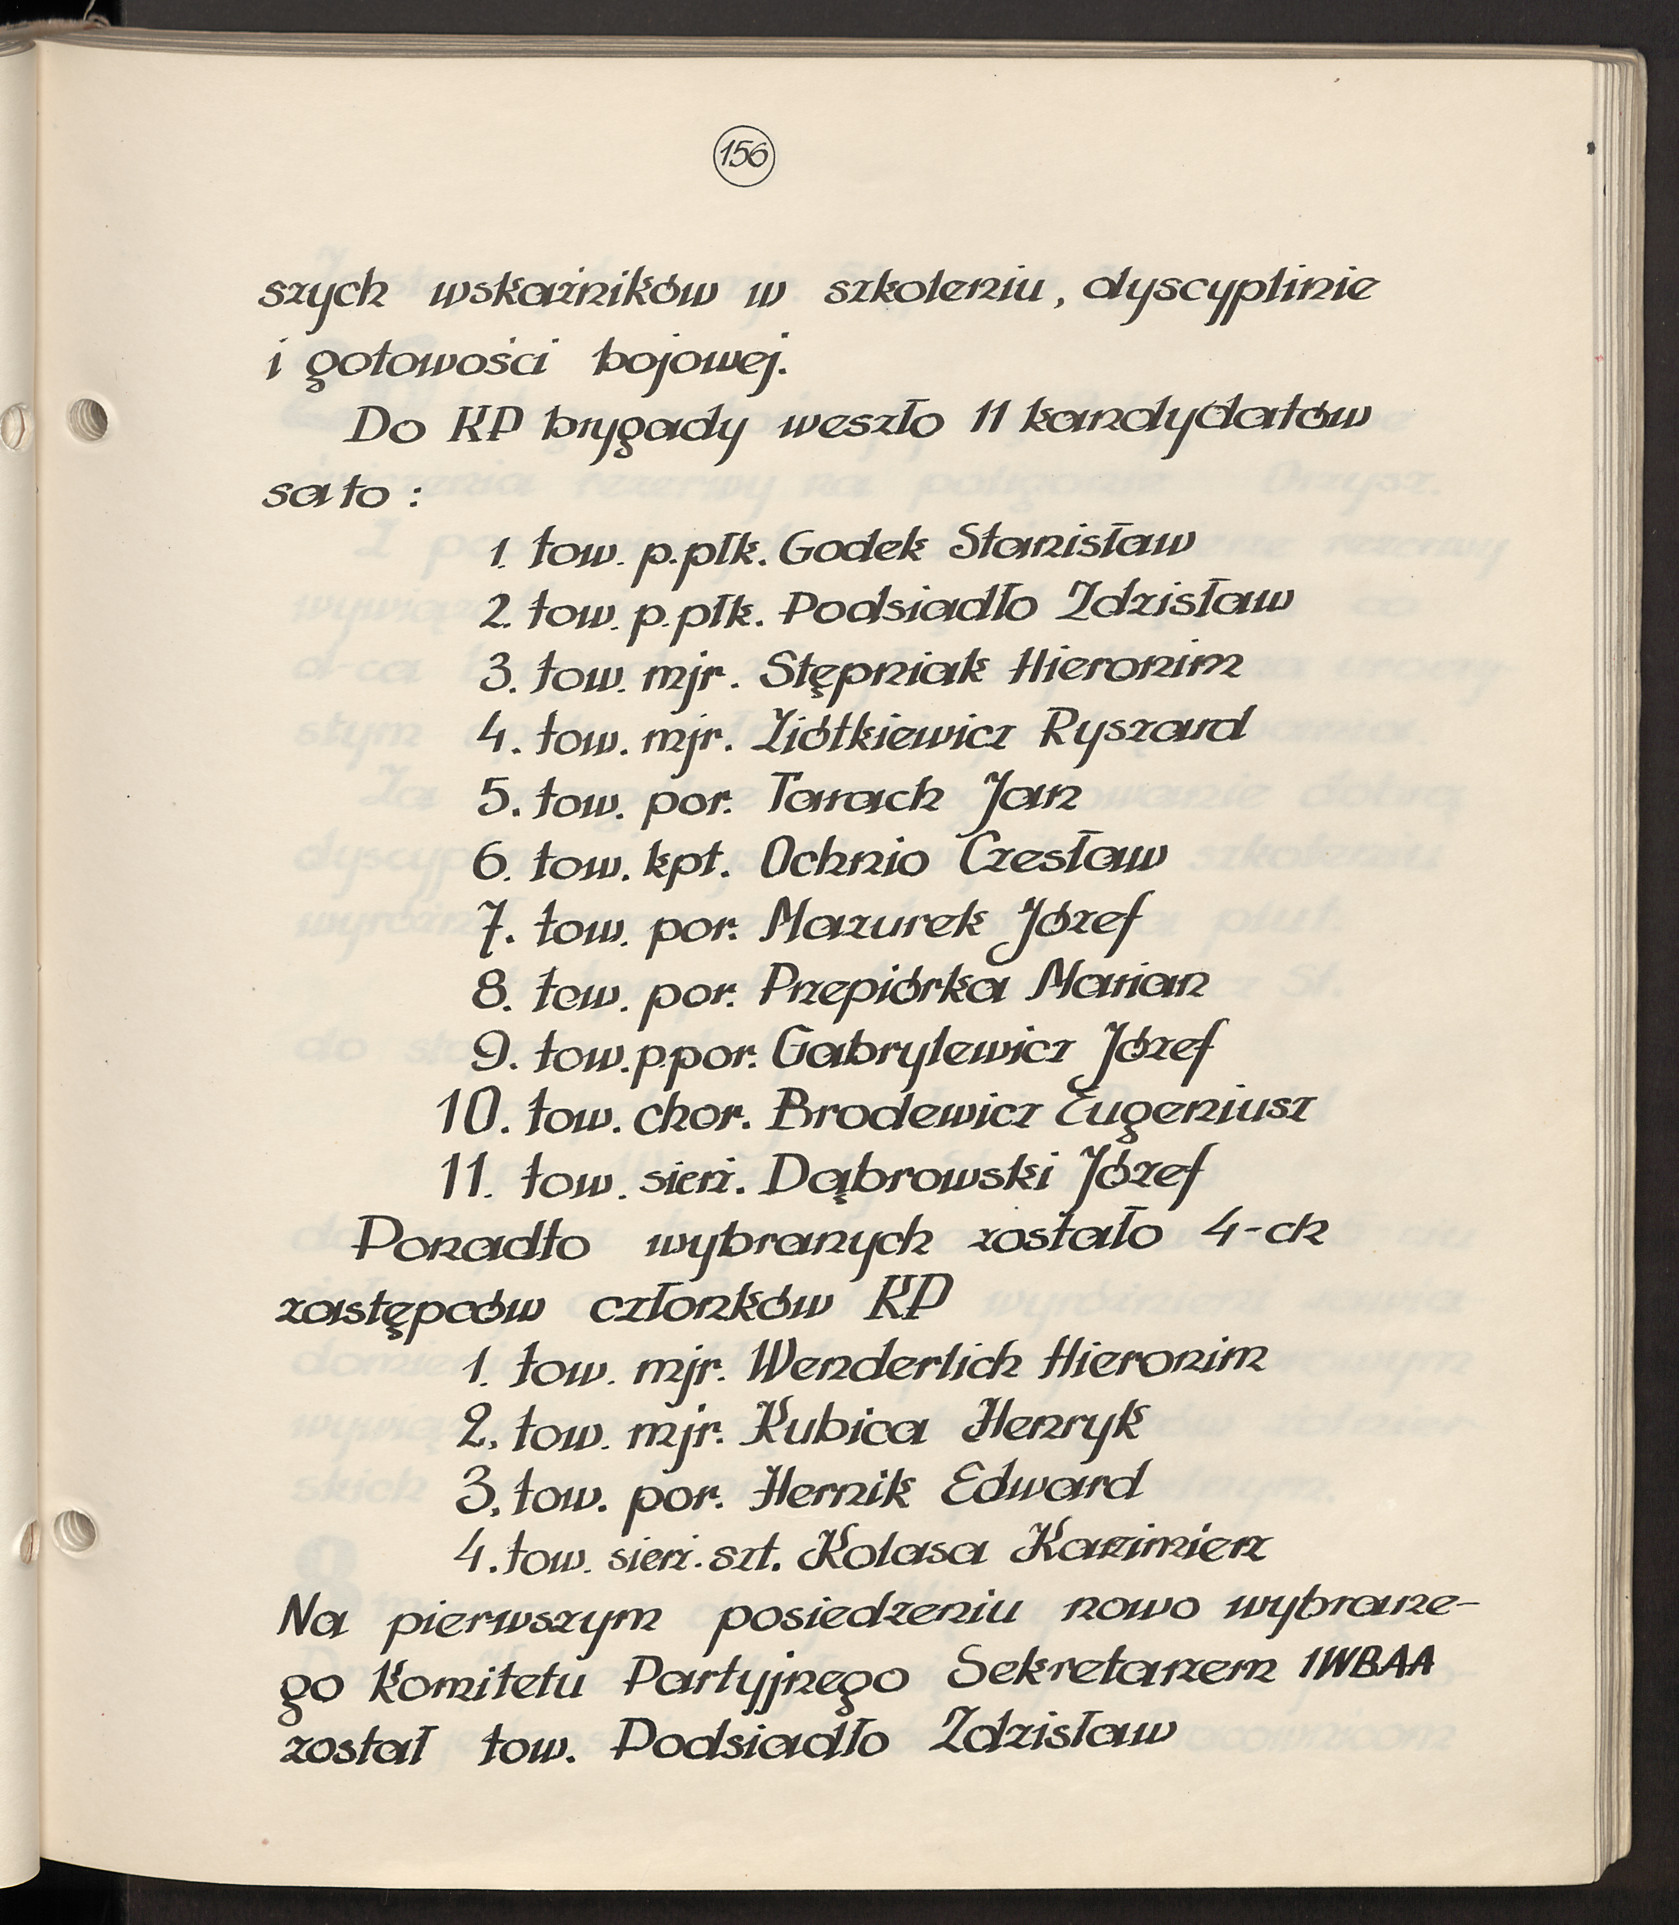 156
szych wskaźników w szkoleniu, dyscyplinie
i gotowości bojowej.
Do KP brygady weszło 11 kandydatów
sa to :
1. tow. p.płk. Godek Stanisław
2. tow. p.płk. Podsiadło Zdzisław
3. tow. mjr. Stępniak Hieronim
4. tow. mjr. Ziółkiewicz Ryszard
5. tow. por. Tarach Jan
6. tow. kpt. Ochnio Czesław
7. tow. por. Mazurek Józef
8. tow. por. Przepiórka Marian
9. tow. p.por. Gabrylewicz Józef
10. tow. chor. Brodewicz Eugeniusz
11. tow. sierż. Dąbrowski Józef
Ponadto wybranych zostało 4-ch
zastępców członków KP
1. tow. mjr. Wenderlich Hieronim
2. tow. mjr. Kubica Henryk
3. tow. por. Hernik Edward
4. tow. sierż. szt. Kolasa Kazimierz
Na pierwszym posiedzeniu nowo wybrane-
go Komitetu Partyjnego Sekretarzem 1WBAA
został tow. Podsiadło Zdzisław